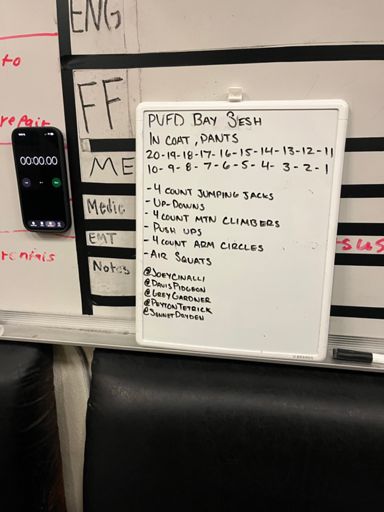 ENG
to
FF
repair
00:00.00
ME
Medic
EMT
rentals
Notes
PVFD BAY SESH
IN COAT, PANTS
20-19-18-17-16-15-14-13-12-11
10-9-8-7-6-5-4-3-2-1
-4 COUNT JUMPING JACKS
-UP-DOWNS
-4 COUNT MTN CLIMBERS
-PUSH UPS
-4 COUNT ARM CIRCLES
-AIR SQUATS
@JOEYCINALLI
@DAVISPIDGEON
@GREYGARDNER
@PEYTONTETRICK
@SENNETDAYDEN